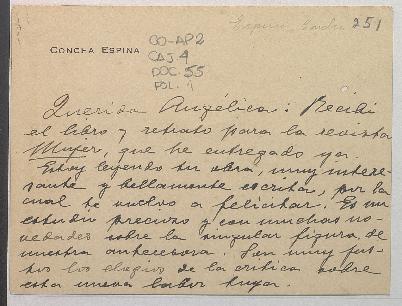 Espina, Concha 251
CONCHA ESPINA
CO-AP2
CAJ 4
DOC. 55
FOL. 1
Querida Angélica: Recibí
el libro y retrato para la revista
Mujer, que he entregado ya.
Estoy leyendo tu obra, muy intere-
sante y bellamente escrita, por la
cual te vuelvo a felicitar. Es un
estudio precioso y con muchas no-
vedades sobre la singular figura de
nuestra antecesora. Son muy jus-
tos los elogios de la crítica sobre
esta nueva labor tuya.